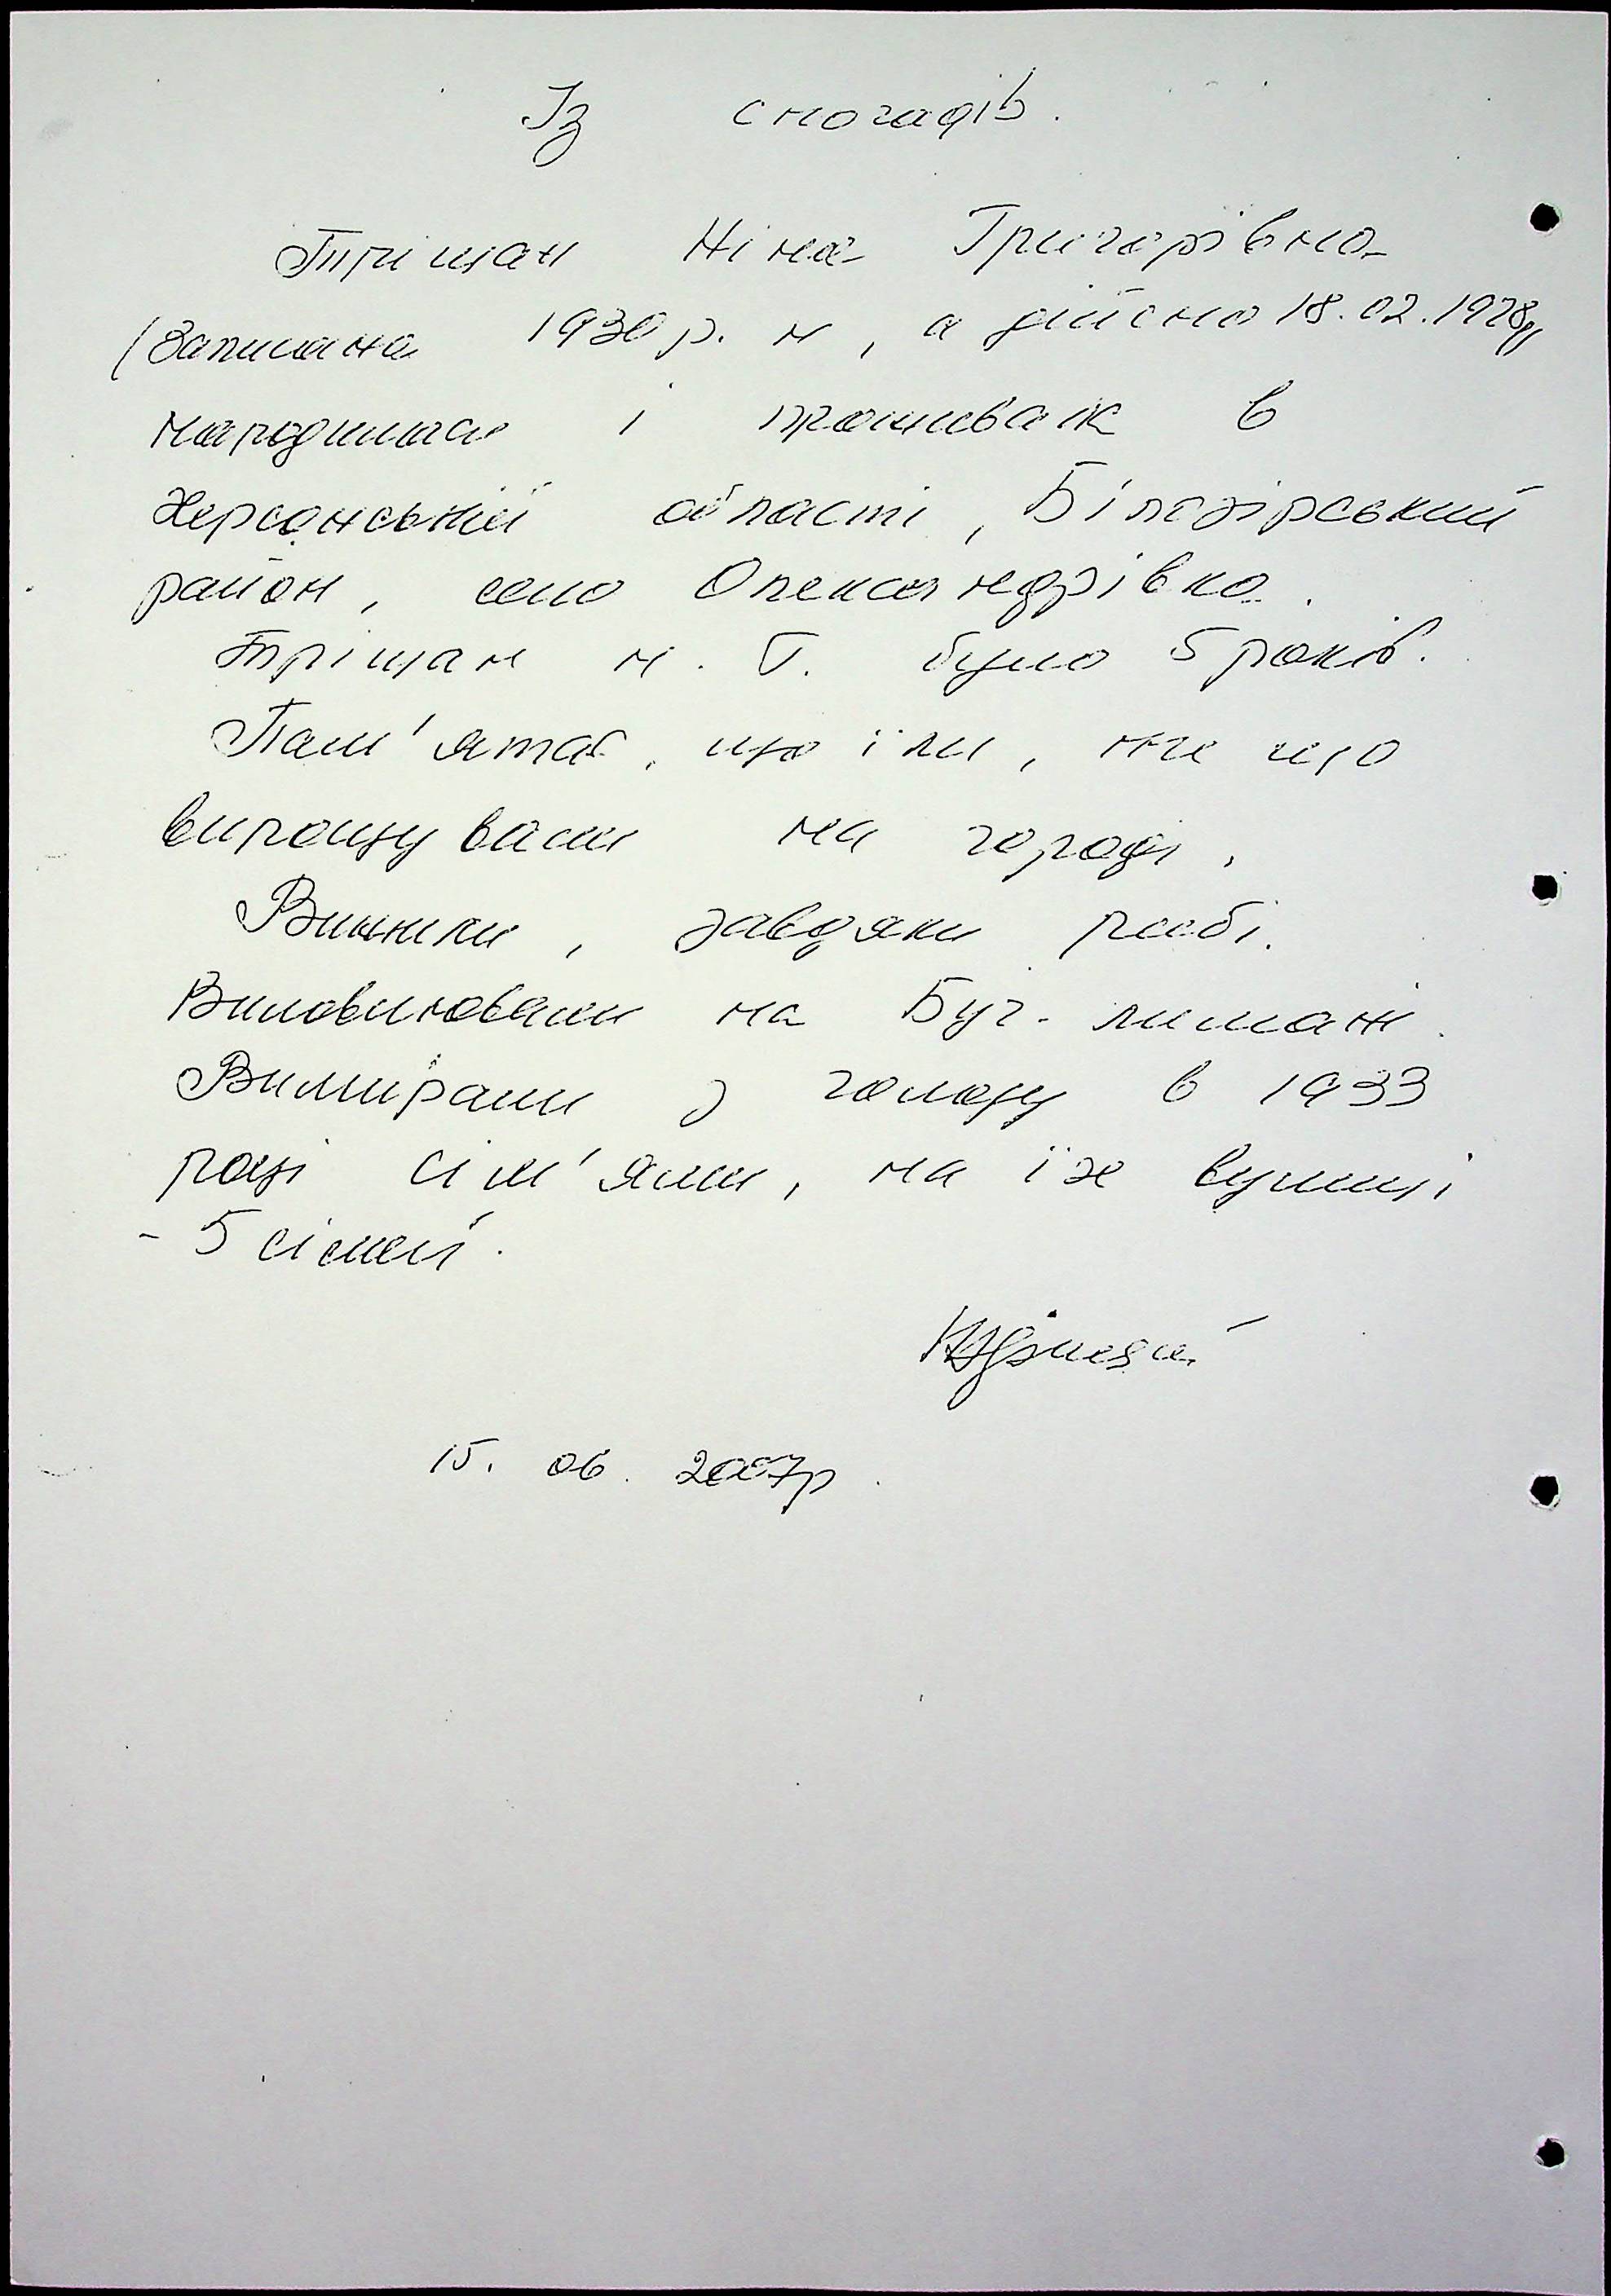 Із спогадів.
Тріщан Ніна Григорівна
(Записана 1930 р. н, а дійсно 18.02.1928р
народилася і проживала в
Херсонській області, Білозірський
район, село Олександрівка.
Тріщан Н. Г. було 5 років.
Пам'ятає, що їли, те що
вирощували на городі,
Вижили, завдяки рибі.
Виловлювали на Буг-лимані.
Вимирали з голоду в 1933
році сім'ями, на їх вулиці
- 5 сімей.
15. 06. 2007р.